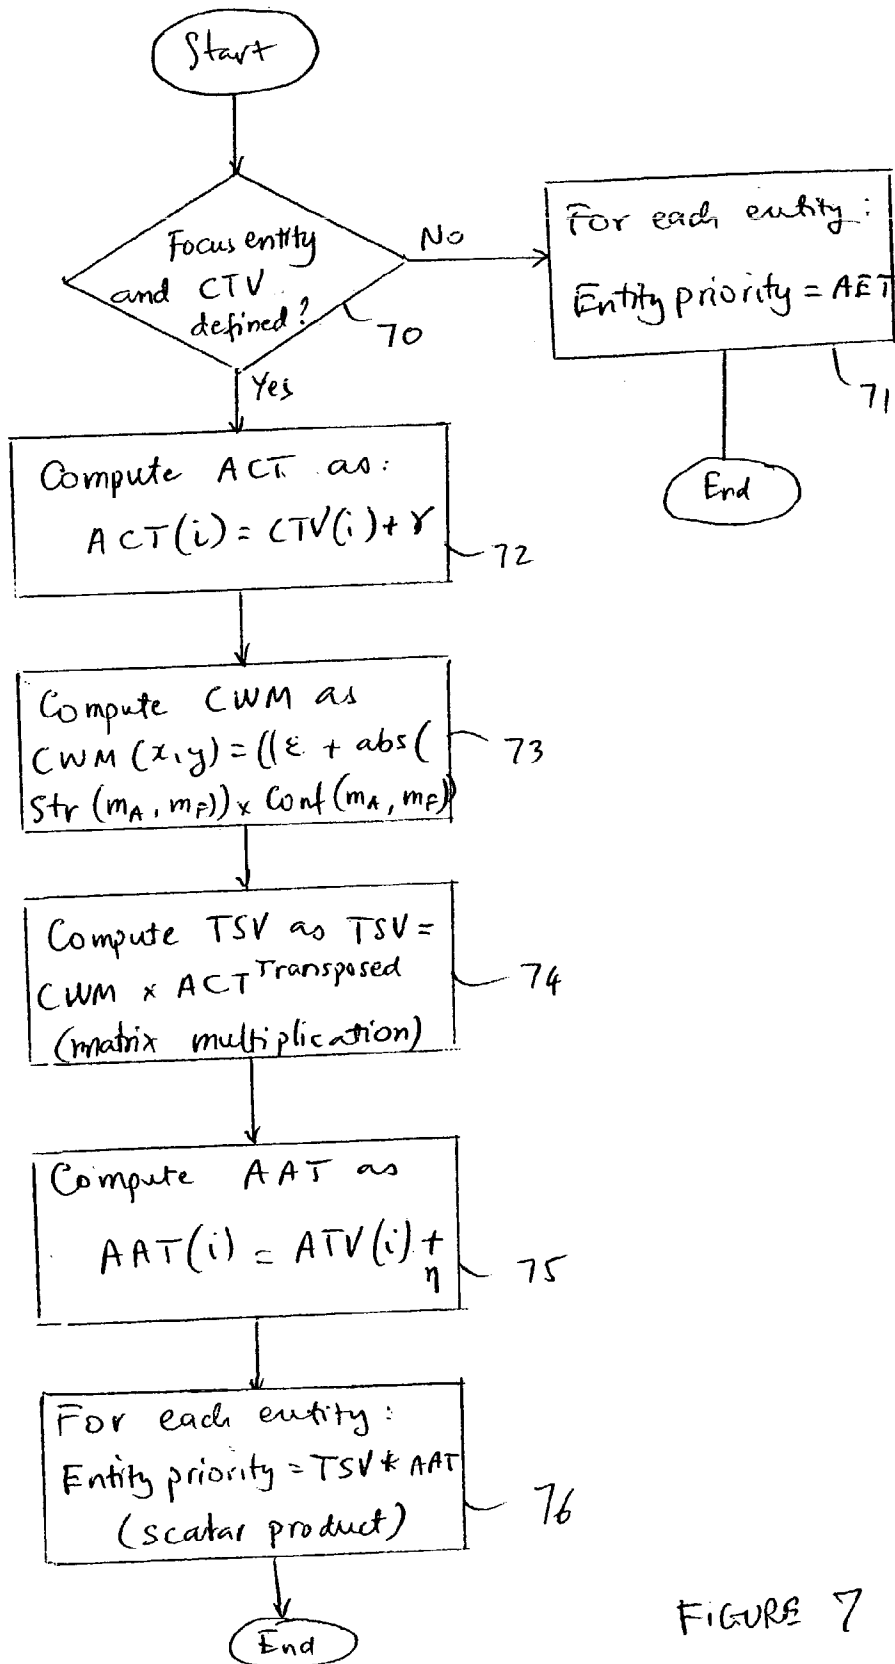 Start
Focus entity
and CTV
defined?
70
No
For each entity:
Entity priority = AET
71
End
Yes
Compute ACT as:
ACT(i) = CTV(i) + γ
72
Compute CWM as
CWM (x,y) = ((ε + abs(
Str (mA, mF)) x Conf (mA, mF))
73
Compute TSV as TSV =
CWM x ACT Transposed
(matrix multiplication)
74
Compute AAT as
AAT(i) = ATV(i) +
η
75
For each entity:
Entity priority = TSV * AAT
(scalar product)
76
End
FIGURE 7